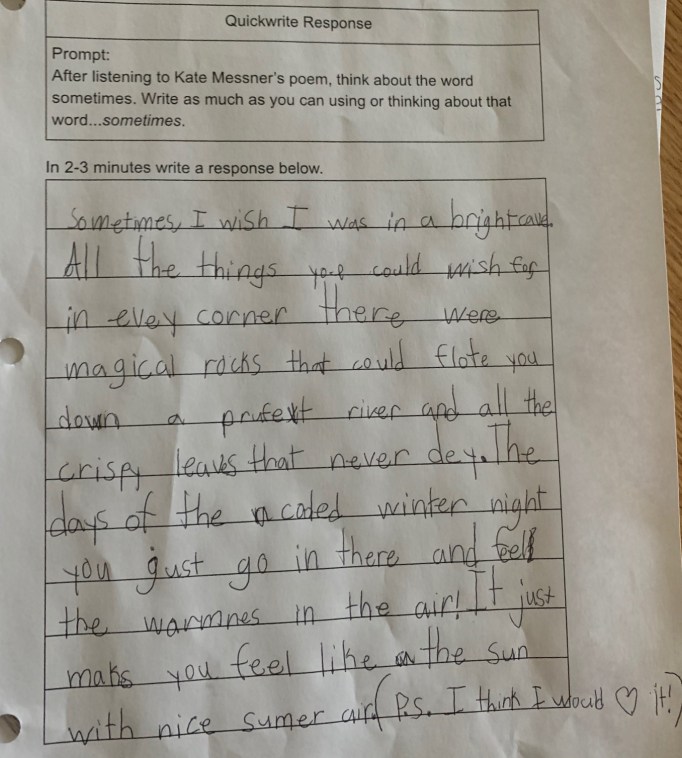 Quickwrite Response
Prompt:
After listening to Kate Messner's poem, think about the word
sometimes. Write as much as you can using or thinking about that
word...sometimes.
In 2-3 minutes write a response below.
Sometimes, I wish I was in a bright cave.
All the things could wish for
in evey corner there were
magical rocks that could flote you
down a prufext river and all the
crispy leaves that never dey. The
days of the coled winter night
you gust go in there and feel
the warmnes in the air! It just
maks you feel like the sun
with nice sumer air! (P.S. I think I would ♡ it!)